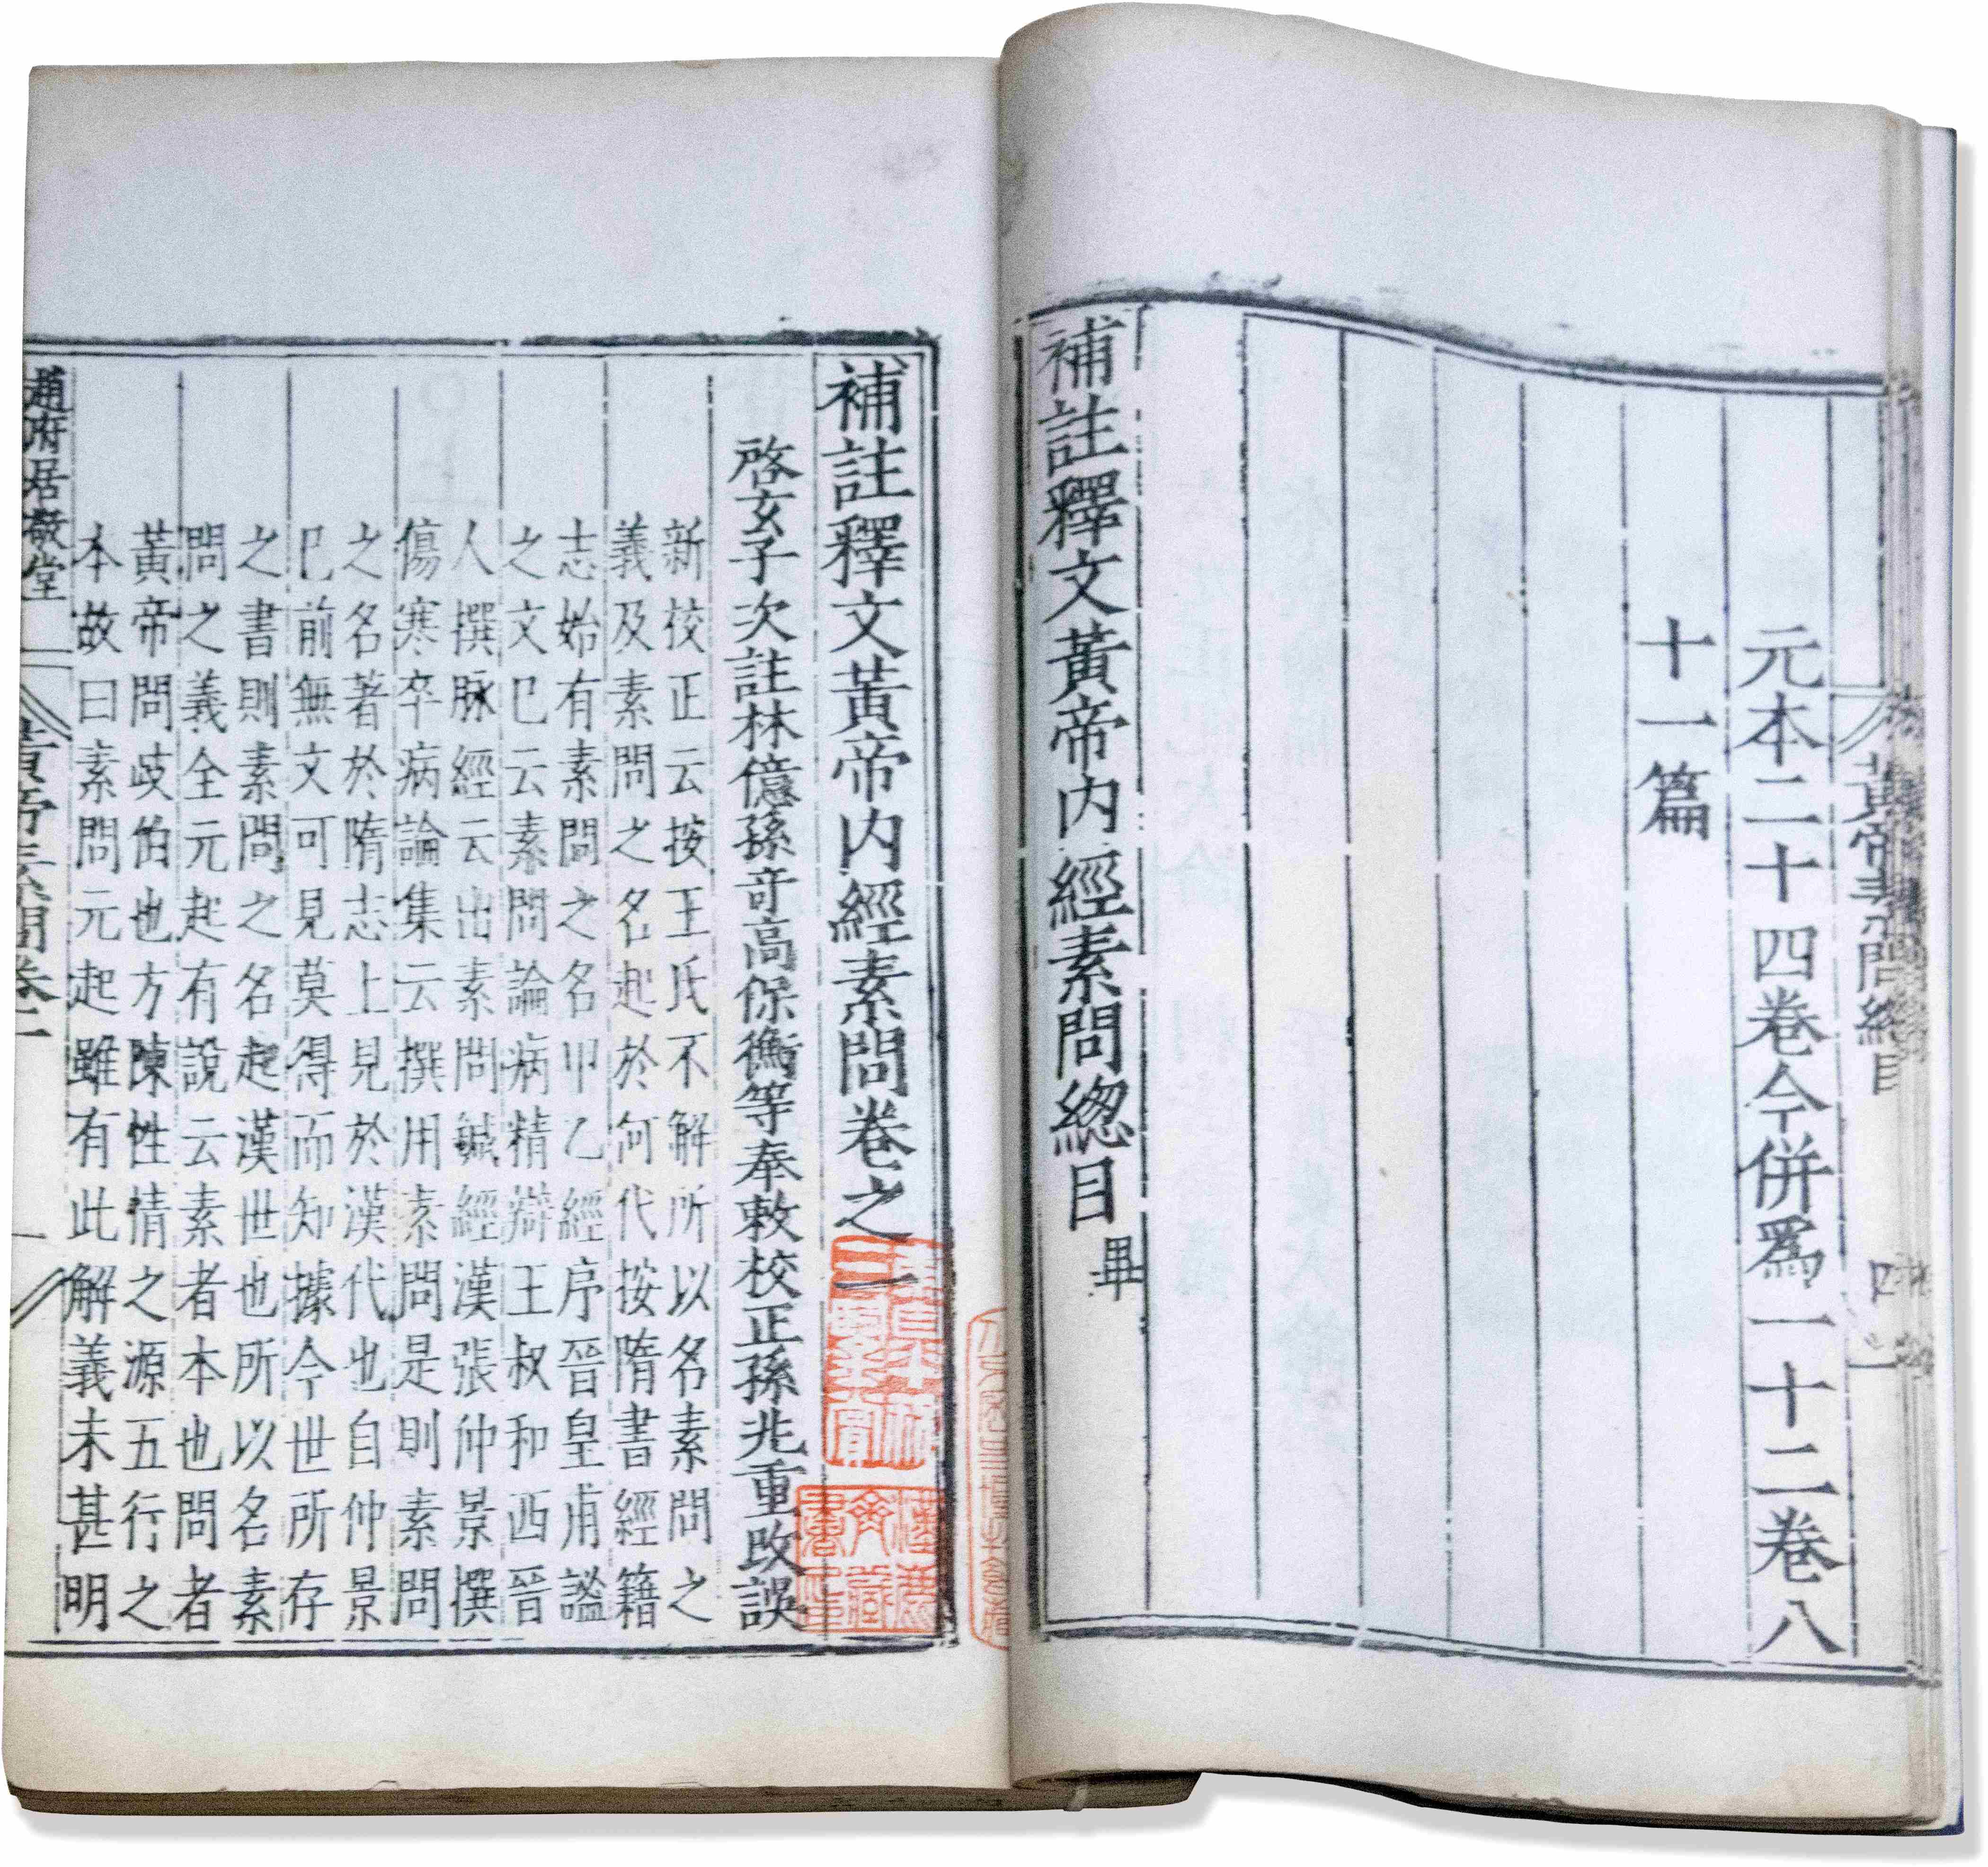 黃帝素問總目
元本二十四卷今併爲一十二卷八
十一篇
補註釋文黃帝内經素問總目畢
補註釋文黃帝内經素問卷之一
啓玄子次註林億孫竒高保衡等奉敕校正孫兆重改誤
新校正云按王氏不解所以名素問之
義及素問之名起於何代按隋書經籍
志始有素問之名甲乙經序晉皇甫謐
之文已云素問論病精辯王叔和西晉
人撰脉經云出素問鍼經漢張仲景撰
傷寒卒病論集云撰用素問是則素問
之名著於隋志上見於漢代也自仲景
已前無文可見莫得而知據今世所存
之書則素問之名起漢世也所以名素
問之義全元起有說云素者本也問者
黃帝問歧伯也方陳性情之源五行之
本故曰素問元起雖有此解義未甚明
趙府居敬堂
黃帝素問卷一